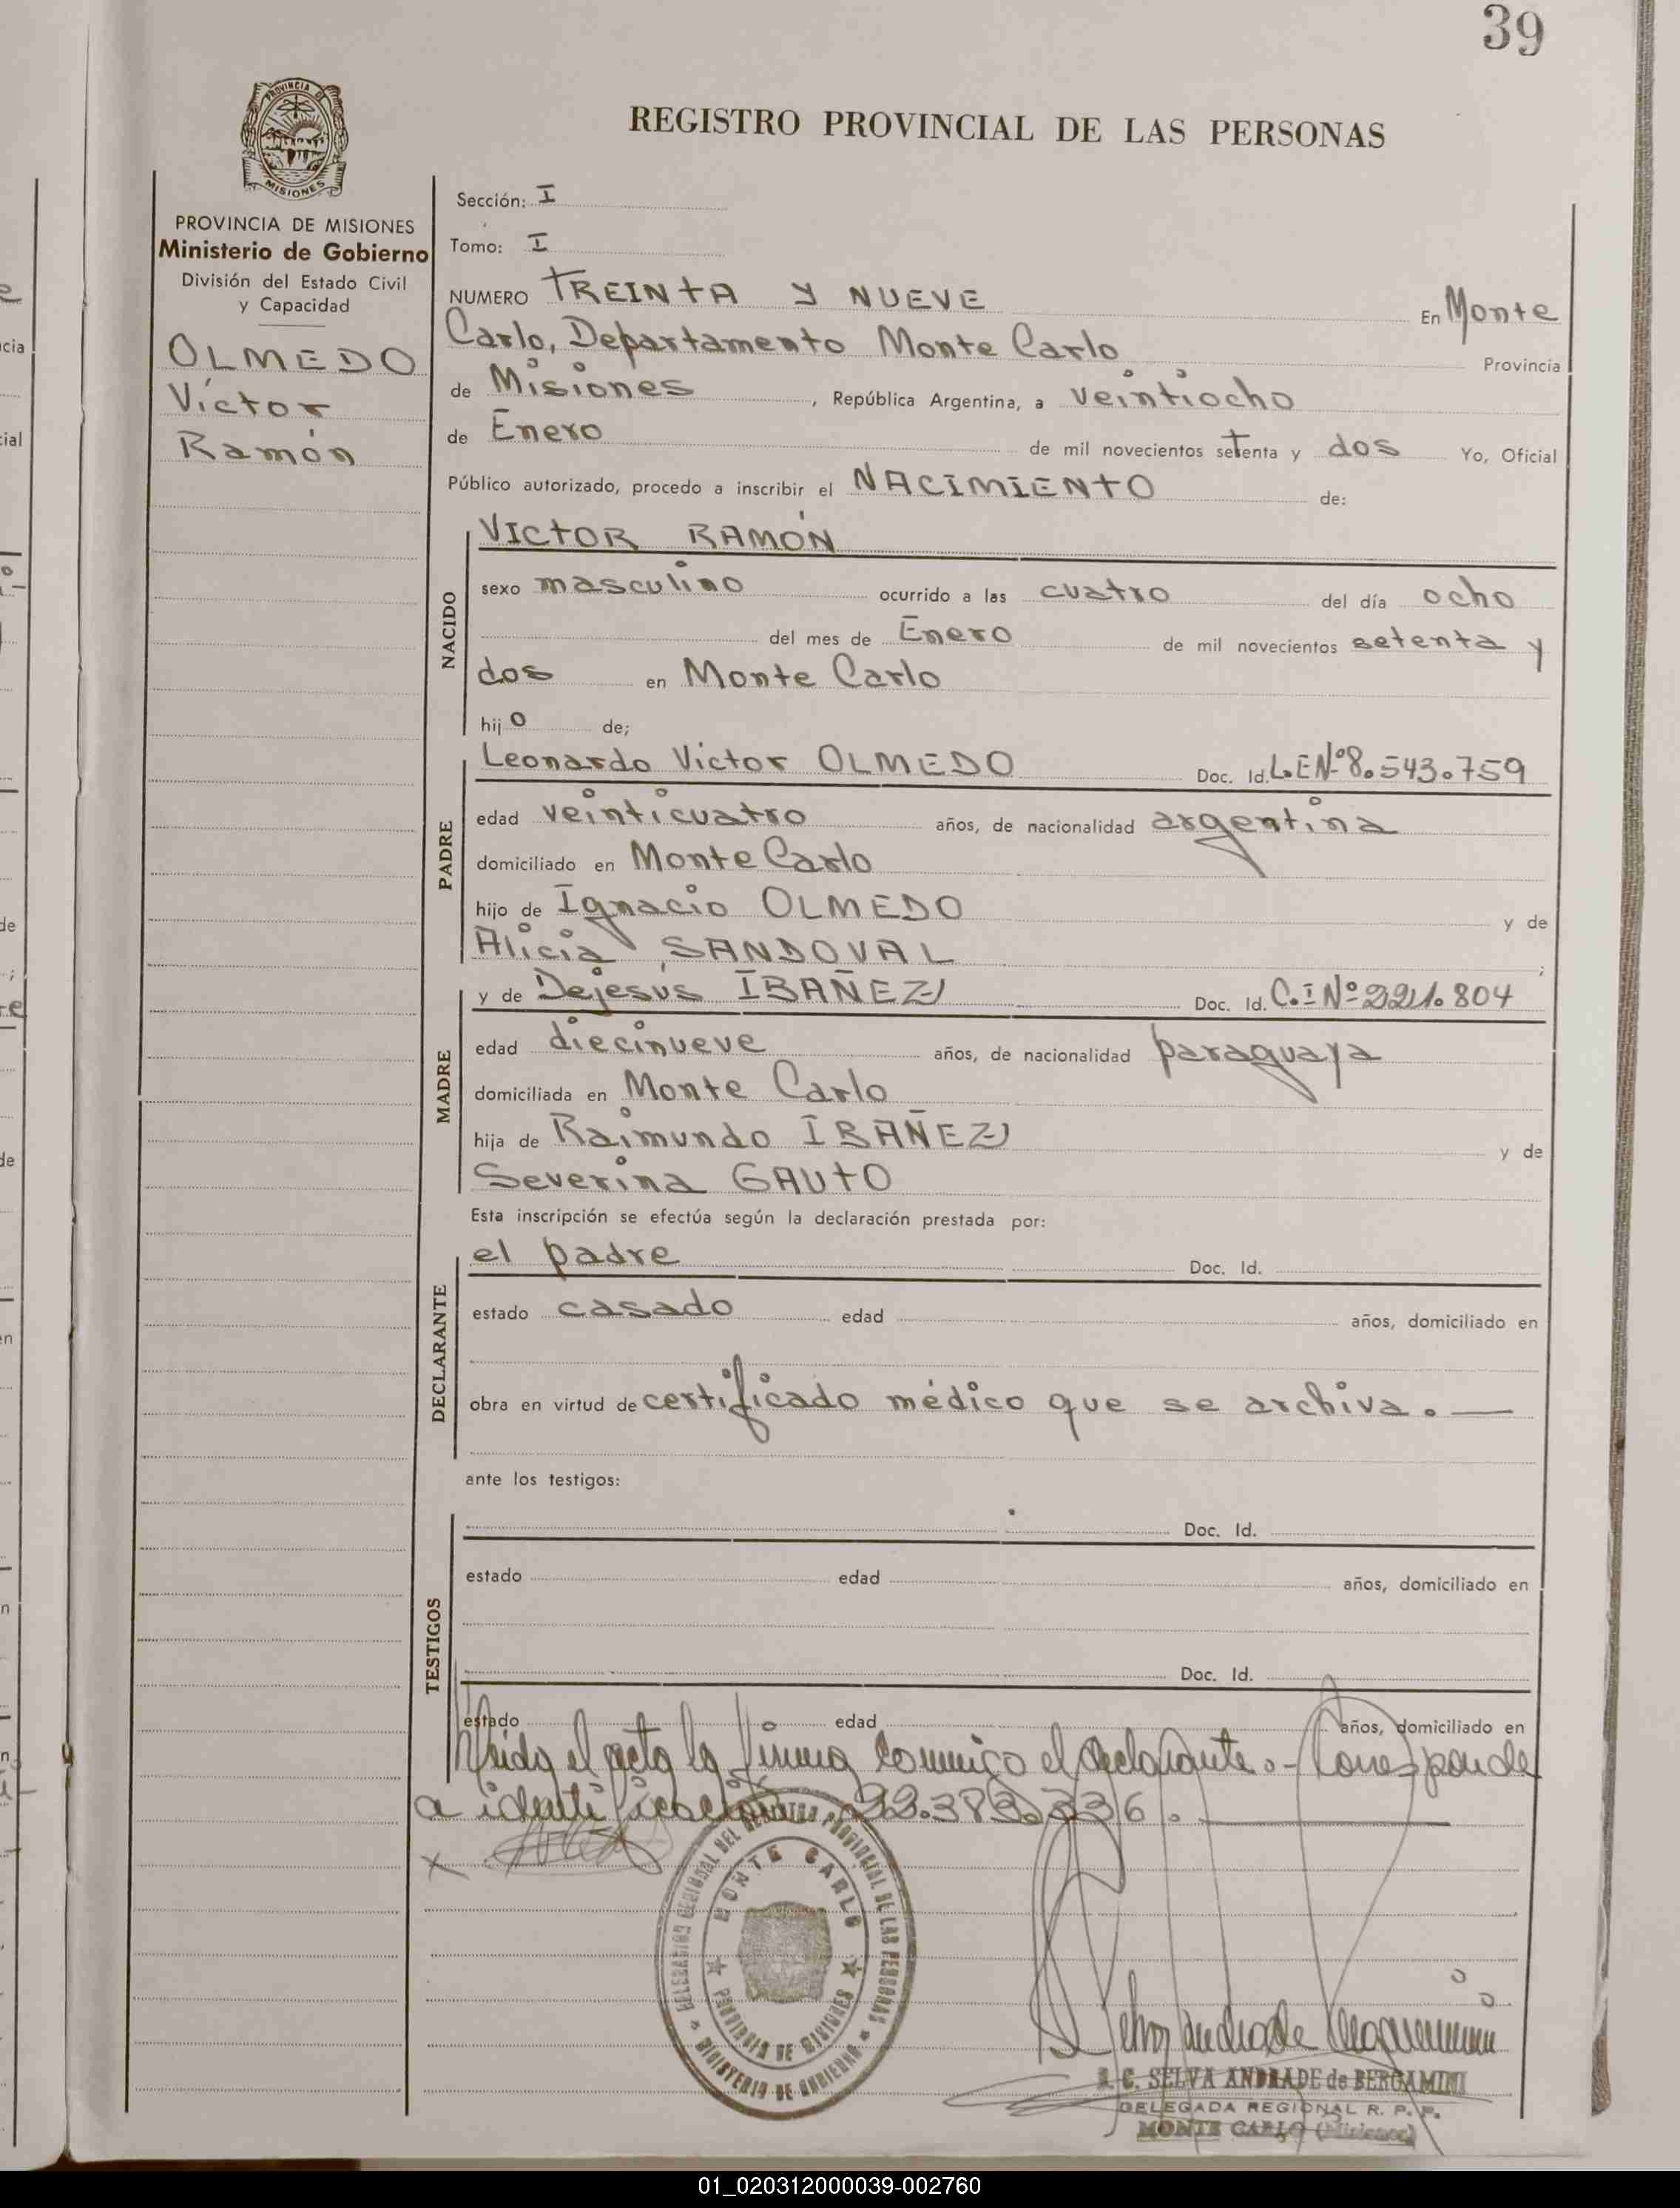 39
PROVINCIA DE
MISIONES
REGISTRO PROVINCIAL DE LAS PERSONAS
PROVINCIA DE MISIONES
Ministerio de Gobierno
División del Estado Civil
y Capacidad
OLMEDO
Víctor
Ramón
Sección: I
Tomo: I
NUMERO TREINTA Y NUEVE En Monte
Carlo, Departamento Monte Carlo Provincia
de Misiones, República Argentina, a veintiocho
de Enero de mil novecientos setenta y dos Yo, Oficial
Público autorizado, procedo a inscribir el NACIMIENTO de:
NACIDO
VICTOR RAMÓN
sexo masculino ocurrido a las cuatro del día ocho
del mes de Enero de mil novecientos setenta y
dos en Monte Carlo
hijo de;
PADRE
Leonardo Victor OLMEDO Doc. Id. L.E Nº 8.543.759
edad veinticuatro años, de nacionalidad argentina
domiciliado en Monte Carlo
hijo de Ignacio OLMEDO y de
Alicia SANDOVAL ;
MADRE
y de Dejesús IBAÑEZ Doc. Id. C.I Nº 221.804
edad diecinueve años, de nacionalidad paraguaya
domiciliada en Monte Carlo
hija de Raimundo IBAÑEZ y de
Severina GAUTO
Esta inscripción se efectúa según la declaración prestada por:
DECLARANTE
el padre Doc. Id.
estado casado edad años, domiciliado en
obra en virtud de certificado médico que se archiva. —
ante los testigos:
TESTIGOS
Doc. Id.
estado edad años, domiciliado en
Doc. Id.
estado edad años, domiciliado en
el acta la firma conmigo el declarante.- Corresponde
a identificación 22.383.336.
x
DELEGACION REGIONAL DEL REGISTRO PROVINCIAL DE LAS PERSONAS
MONTE CARLO
PROVINCIA DE MISIONES
MINISTERIO DE GOBIERNO
C. SELVA ANDRADE de BERGAMINI
DELEGADA REGIONAL R. P. P.
MONTE CARLO (Misiones)
01_020312000039-002760